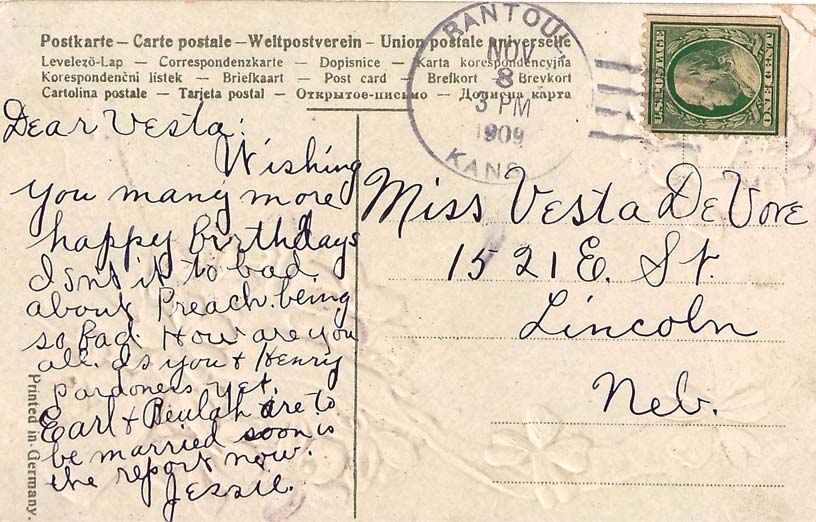 Postkarte – Carte postale – Weltpostverein – Union postale universelle
Levelező-Lap — Correspondenzkarte — Dopisnice — Karta korespondencyjna
Korespondenční lístek — Briefkaart — Post card — Brefkort — Brevkort
Cartolina postale — Tarjeta postal — Открытое-письмо — Дописна карта
RANTOUL
NOV
8
3 PM
1909
KANS
U.S. POSTAGE
ONE CENT
Dear Vesta:
Wishing
you many more
happy birthdays
Isnt it to bad
about Preach. being
so bad How are you
all. Is you & Henry
pardoners yet.
Earl & Beulah are to
be married soon is
the report now.
Jessie.
Miss Vesta DeVore
1521 E. St.
Lincoln
Neb.
Printed in Germany.